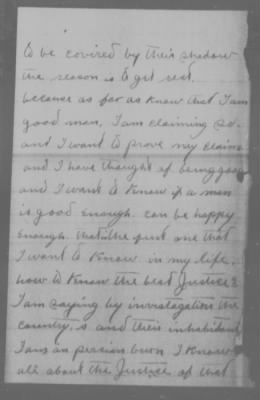 to be covired by their shedow
the reason is to get rest.
because as far as know that I am
good man, I am claiming so.
and I want to prove my claim
and I have thought of being good
and I want to know if a man
is good enough. can be happy
enough. that the just one that
I want to know in my life,
how to know the best Justice?
I am saying by invistagation the
country, s and their inhabitant
I am an persian born, I know
all about the Justice of that